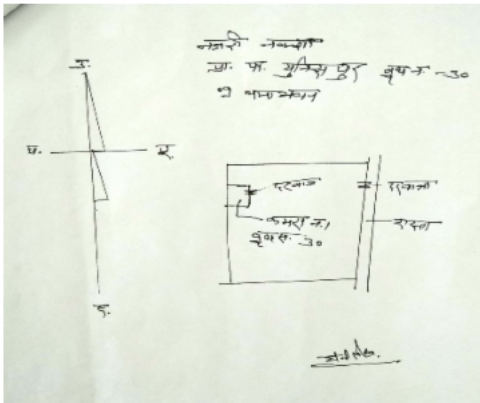 नजरी नक्शा
प्रा. पा. मुनिसपुर बूथ न. -30
उ.
प.
पू.
द.
दरवाजा
कमरा न. 1
बूथ स. 30
दरवाजा
रास्ता